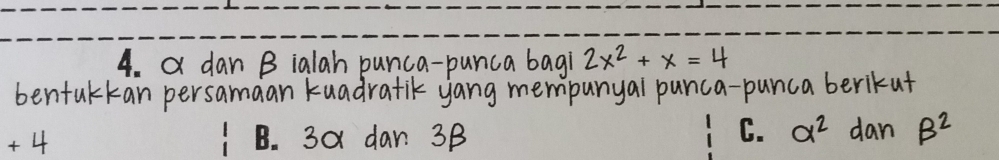 4. α dan β ialah punca-punca bagi 2x² + x = 4
bentukkan persamaan kuadratik yang mempunyai punca-punca berikut
+ 4 B. 3α dan 3β C. α² dan β²